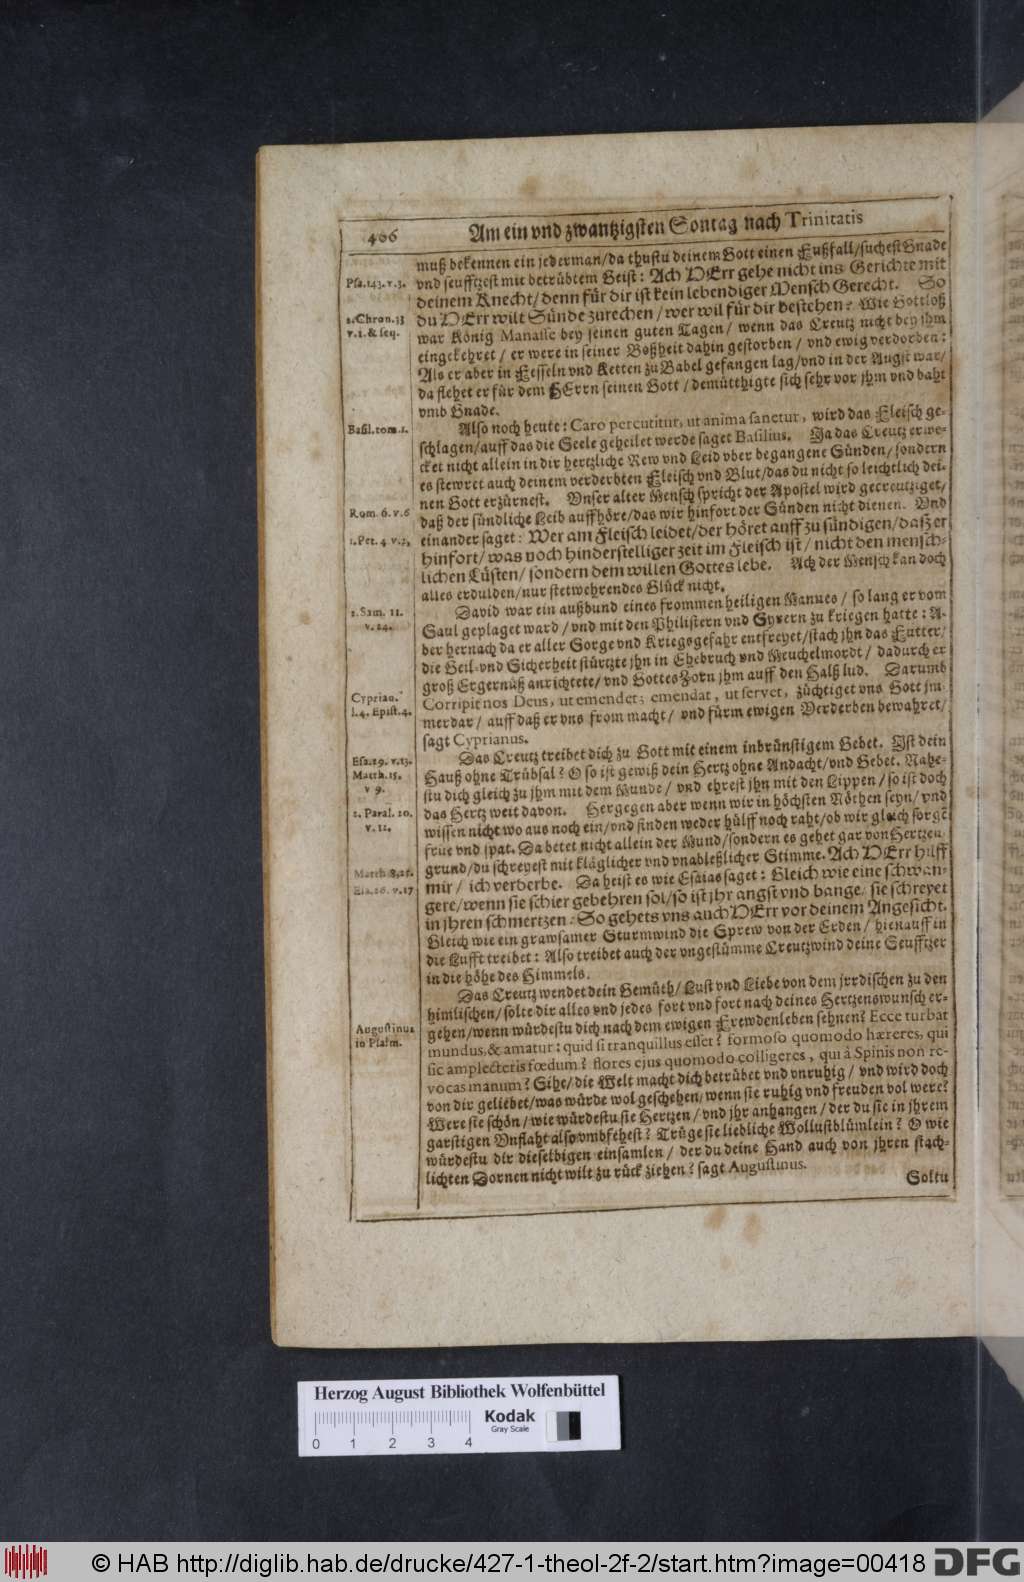 406
Am ein vnd zwantzigsten Sontag nach Trinitatis
muß bekennen ein jederman/da thustu deinem Gott einen Fußfall/suchest Gnade
Psa.143.v.3.
vnd seufftzest mit betrübtem Geist: Ach HErr gehe nicht ins Gerichte mit
deinem Knecht/denn für dir ist kein lebendiger Mensch Gerecht. So
2.Chron.33
v.1.& seq.
du HErr wilt Sünde zurechen/wer wil für dir bestehen? Wie Gottloß
war König Manasse bey seinen guten Tagen/ wenn das Creutz nicht bey jhm
eingekehret/ er were in seiner Boßheit dahin gestorben/ vnd ewig verdorben:
Als er aber in Fesseln vnd Ketten zu Babel gefangen lag/vnd in der Angst war/
da flehet er für dem HErrn seinen Gott/ demütthigte sich sehr vor jhm vnd baht
vmb Gnade.
Basil.tom.1.
Also noch heute: Caro percutitur, ut anima sanetur, wird das Fleisch ge-
schlagen/auff das die Seele geheilet werde saget Basilius. Ja das Creutz erwe-
cket nicht allein in dir hertzliche Rew vnd Leid vber begangene Sünden/ sondern
es stewret auch deinem verderbten Fleisch vnd Blut/das du nicht so leichtlich dei-
nen Gott erzürnest. Vnser alter Mensch spricht der Apostel wird gecreutziget/
Rom. 6. v.6
daß der sündliche Leib auffhöre/das wir hinfort der Sünden nicht dienen. Vnd
1.Pet. 4. v.1,
einander saget: Wer am Fleisch leidet/der höret auff zu sündigen/daß er
hinfort/ was noch hinderstelliger zeit im Fleisch ist/ nicht den mensch-
lichen Lüsten/ sondern dem willen Gottes lebe. Ach der Mensch kan doch
alles erdulden/nur stetwehrendes Glück nicht.
2.Sam. 11.
v. 24.
David war ein außbund eines frommen heiligen Mannes/ so lang er vom
Saul geplaget ward/ vnd mit den Philistern vnd Syrern zu kriegen hatte: A-
ber hernach da er aller Sorge vnd Kriegsgefahr entfreyet/stach jhn das Futter/
die Geil-vnd Sicherheit stürtzte jhn in Ehebruch vnd Meuchelmordt/ dadurch er
groß Ergernüß anrichtete/ vnd Gottes Zorn jhm auff den Halß lud. Darumb
Cyprian.
l.4. Epist.4.
Corripit nos Deus, ut emendet; emendat, ut servet, züchtiget vns Gott im-
merdar/ auff daß er vns from macht/ vnd fürm ewigen Verderben bewahret/
sagt Cyprianus.
Esa.29. v.13.
Matth.15.
v 9.
Das Creutz treibet dich zu Gott mit einem inbrünstigem Gebet. Ist dein
Hauß ohne Trübsal? O so ist gewiß dein Hertz ohne Andacht/vnd Gebet. Nahe-
stu dich gleich zu jhm mit dem Munde/ vnd ehrest jhn mit den Lippen/ so ist doch
2. Paral. 20.
v. 12.
das Hertz weit davon. Hergegen aber wenn wir in höchsten Nöthen seyn/ vnd
wissen nicht wo aus noch ein/vnd finden weder hülff noch raht/ob wir gleich sorgē
früe vnd spat. Da betet nicht allein der Mund/sondern es gehet gar von Hertzen
grund/du schreyest mit kläglicher vnd vnableßlicher Stimme. Ach HErr hilff
Matth 8,25.
Esa.26. v.17
mir/ ich verderbe. Da heist es wie Esaias saget: Gleich wie eine schwan-
gere/wenn sie schier gebehren sol/so ist jhr angst vnd bange/ sie schreyet
in jhren schmertzen: So gehets vns auch HErr vor deinem Angesicht.
Gleich wie ein grawsamer Sturmwind die Sprew von der Erden/ hienauff in
die Lufft treibet: Also treibet auch der vngestümme Creutzwind deine Seufftzer
in die höhe des Himmels.
Das Creutz wendet dein Gemüth/ Lust vnd Liebe von dem jrrdischen zu den
himlischen/ solte dir alles vnd jedes fort vnd fort nach deines Hertzenswunsch er-
Augustinus
in Psalm.
gehen/wenn würdestu dich nach dem ewigen Frewdenleben sehnen? Ecce turbat
mundus, & amatur: quid si tranquillus esset? formoso quomodo hæreres, qui
sic amplecteris fœdum? flores ejus quomodo colligeres, qui à Spinis non re-
vocas manum? Sihe/ die Welt macht dich betrübet vnd vnruhig/ vnd wird doch
von dir geliebet/was würde wol geschehen/wenn sie ruhig vnd freuden vol were?
Were sie schön/ wie würdestu sie Hertzen/ vnd jhr anhangen/ der du sie in jhrem
garstigen Vnflaht also vmbfehest? Trüge sie liebliche Wollustblümlein? O wie
würdestu dir dieselbigen einsamlen/ der du deine Hand auch von jhren stach-
lichten Dornen nicht wilt zu rück ziehen? sagt Augustinus.
Soltu
Herzog August Bibliothek Wolfenbüttel
0 1 2 3 4
Kodak
Gray Scale
© HAB http://diglib.hab.de/drucke/427-1-theol-2f-2/start.htm?image=00418
DFG